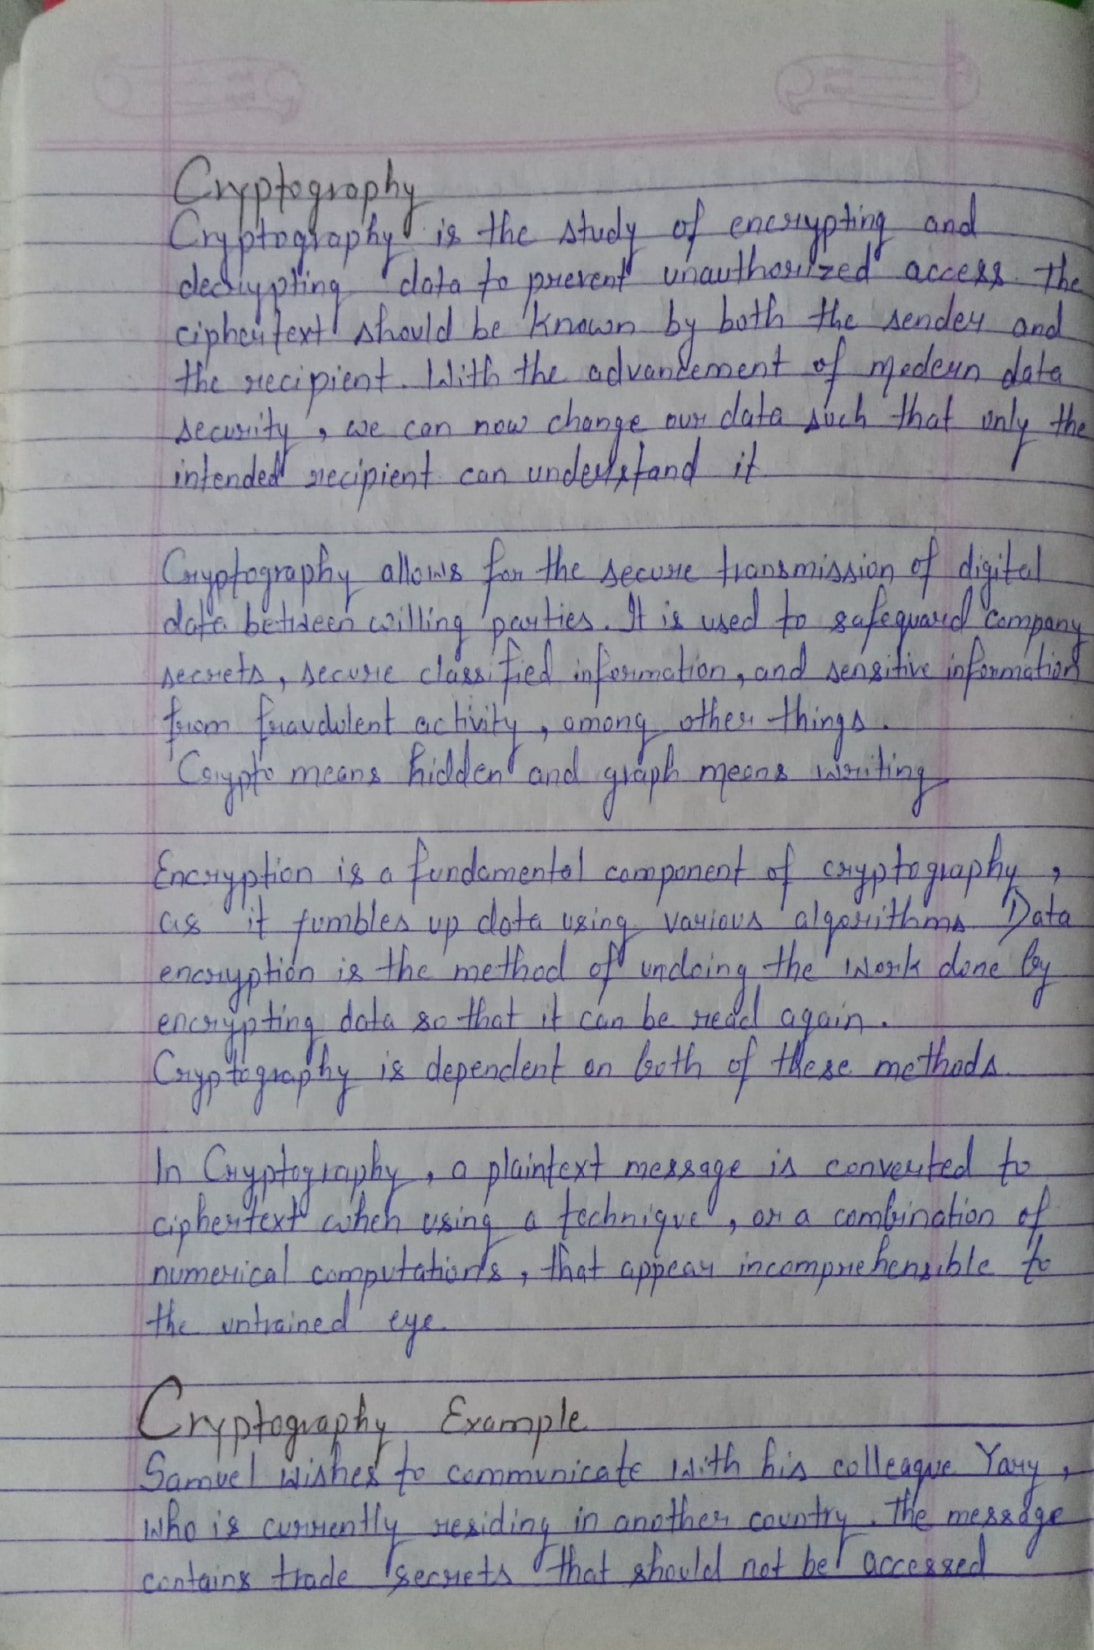 Cryptography
Cryptography is the study of encrypting and
decrypting data to prevent unauthorized access. The
ciphertext should be known by both the sender and
the recipient. With the advancement of modern data
security, we can now change our data such that only the
intended recipient can understand it
Cryptography allows for the secure transmission of digital
data between willing parties. It is used to safeguard company
secrets, secure classified information, and sensitive information
from fraudulent activity, among other things.
Crypto means hidden and graph means writing
Encryption is a fundamental component of cryptography,
as it jumbles up data using various algorithms. Data
encryption is the method of undoing the work done by
encrypting data so that it can be read again.
Cryptography is dependent on both of these methods.
In Cryptography, a plaintext message is converted to
ciphertext when using a technique, or a combination of
numerical computations, that appear incomprehensible to
the untrained eye.
Cryptography Example
Samuel wishes to communicate with his colleague Yary,
who is currently residing in another country. The message
contains trade secrets that should not be accessed